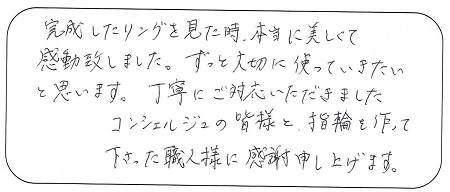 完成したリングを見た時、本当に美しくて
感動致しました。ずっと大切に使っていきたい
と思います。丁寧にご対応いただきました
コンシェルジュの皆様と、指輪を作って
下さった職人様に感謝申し上げます。